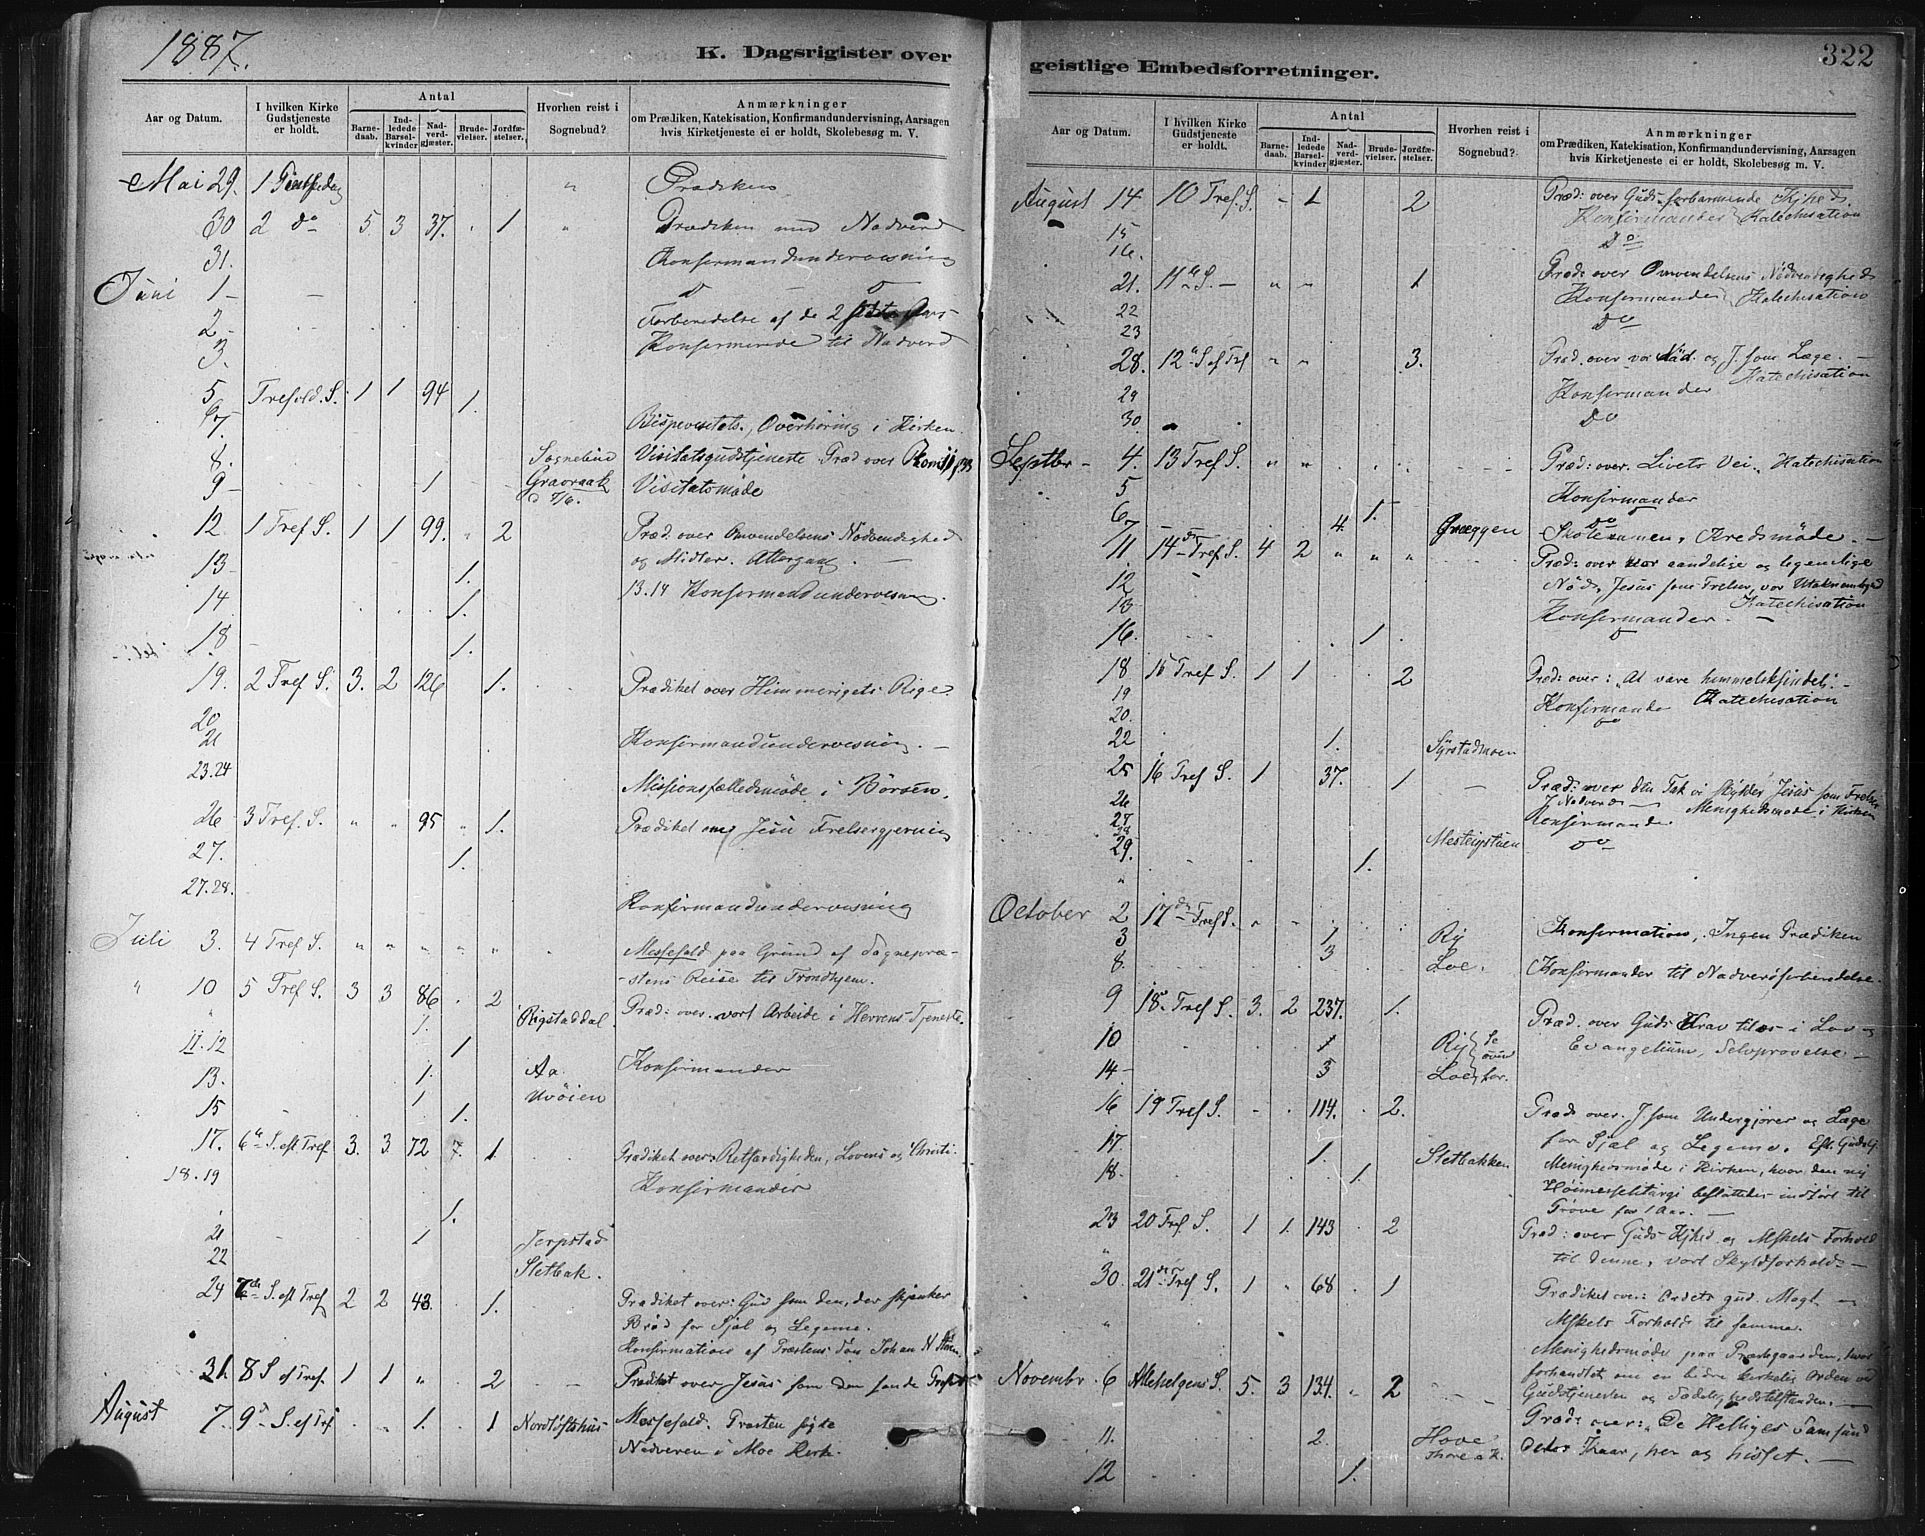 1887.
K. Dagsrigister over
Aar og Datum. I hvilken Kirke Gudstjeneste er holdt. Antal Barnedaab. Indledede Barselkvinder Nadverdgjæster. Brudevielser. Jordfæstelser. Hvorhen reist i Sognebud? Anmærkninger om Prædiken, Katekisation, Konfirmandundervisning, Aarsagen hvis Kirketjeneste ei er holdt, Skolebesøg m. V.
Mai 29. 1 " Prædiken
30 2 do 5 3 37. 1 " Prædiken med Nadverd
31. Konfirmandundervisning
Juni 1 -
2 - Forberedelse af de 2
3. Konfirmerede til Nadverd
5 Trefold. S. 1 1 94
6 1.
7. Bispevisitats, Overhøring i Kirken.
8. Sognebud Visitatsgudstjeneste Præd over
9 - 1 Graoraak d 7/6. Visitatsmøde
12. 1 Tref S. 1 1 99. 2 Præd. over Omvendelsens Nødvendighed
og Midler. Altergang. -
13 - 1. 13.14 Konfirmandundervisning.
14 1.
18 - 1.
19. 2 Tref S. 3. 2 126 1. Prædiket over Himmerigets Rige.
20
21 Konfirmandundervisning. -
23.24 Missionsfællesmøde i Börsen.
26 3 Tref. S. " " 95 " 1. Prædiket om Jesu Frelsergjerning
27. 1.
27.28. Konfirmandundervisning
Juli 3. 4 Tref S. " " " " " Messefald paa Grund af Sognepræ-
-stens Reise til Trondhjem.
" 10 5 Tref S. 3 3 86 2 Præd: over. vort Arbeide i Herrens Tjeneste.
1. Rigstaddal
11.12 1 Konfirmander
13. 1. Aa
1 Uvöien
15 1.
17. 6te S. eft Tref 3. 3 72 7. 1 Prædiket over Retfærdigheden, Lovens og Christi.
18.19 Konfirmander
1.
21 1 Jerpstad
22 Sletbak.
24 7de S. eft Tref 2 2 43. 1. Prædiket over: Gud som den, der skjænker
Bröd for Sjæl og Legeme.
Konfirmation af Præstens Søn Johan
31. 8 S ef Tref. 1 1 " 2 - - Prædiket over Jesus som den sande
August 7. 9d S. ef Tref 1. 1 Nordløftshus Messefald. Præsten søgte
Nadveren i Moe Kirke.
geistlige Embedsforretninger.
322
Aar og Datum. I hvilken Kirke Gudstjeneste er holdt. Antal Barnedaab. Indledede Barselkvinder Nadverdgjæster. Brudevielser. Jordfæstelser. Hvorhen reist i Sognebud? Anmærkninger om Prædiken, Katekisation, Konfirmandundervisning, Aarsagen hvis Kirketjeneste ei er holdt, Skolebesøg m. V.
August 14 10 Tref. S. - 1 2 Præd: over Guds forbarmende Kjhed.
15 Konfirmander Katechisation
16. Do
21. 11te S. - " " 1 Præd: over Omvendelsens Nödvendighed
22 Konfirmander Katechisation
23 Do
28. 12te S ef Tref " " 3. Præd. over vor Nöd. og J. som Læge. -
29 Konfirmander Katechisation
30. Do
Septbr - 4. 13 Tref S. " " Præd: over. Livets Vei. Katechisation
5 Konfirmander
6 1. Do
7 4. Græggen Skoleexamen. Kredsmøde. -
11 14de Tref S. 4 2 " " " Præd: over vor aandelige og legemlige
12 Nöd, Jesus som Frelser, vor Utaknemlighed
13 Konfirmander. Katechisation -
16. 1.
18 15 Tref S. 1 1 2 Præd: over: "At være himmelsksindet". -
19 Konfirmander Katechisation
20. Do
22 1. Syrstadmoen
25 16 Tref S. 1 37. 1 - Præd: over den Tak vi skylder Jesus som Frelser
26 Nadverd - Menighedsmøde i Kirken
27 Konfirmander
28 Do
29. 1. Mesteigstuen
October 2 17de Tref S. " Konfirmation. Ingen Prædiken
3 1 Ry
8. 3 Loe. Konfirmander til Nadverdforberedelse.
9 18de Tref S. 3. 2 237. 1. Præd. over Guds Krav til os i Lov og
10 1 Ry Se Evangelium, Selvprøvelse -
14 - 3 Loe ovenfor.
16 19 Tref S. - . 114. 2. Præd. over. J. som Undergjører og Læge
17. 1. Sletbakken for Sjæl og Legeme. Eft. Gudstj.
18. 1. Menighedsmøde i Kirken, hvor den ny
Høimesseliturgi besluttedes indført til
Prøve for 1 Aar. -
23 20 Tref. S. 1 1. 143 2 Præd: over Guds Kjhed og Mskets Forhold
" til denne, vort Skyldforhold -
30. 21de Tref S. 1 " 68 1 Prædiket over: Ordets gud. Magt og
" Mskets Forhold til samme.
Menighedsmøde paa Præstgaarden, hvor
Novembr. 6 Allehelgens S. 5. 3 134. " 2 - - forhandlet om en bedre kirkelig Orden ved
Gudstjenesten og Sædelighedstilstanden. -
11. 2. Hove Præd: over: De Helliges Samfund
dets Kaar, her og hisset. -
12 1.